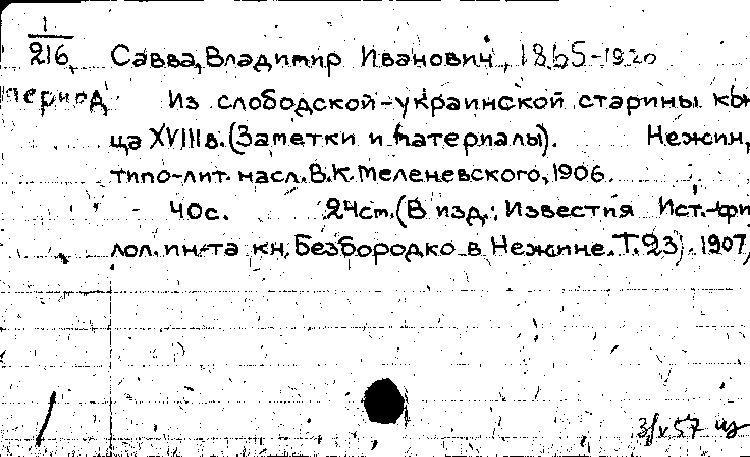 1
216 Савва, Владимир Иванович, 1865-1920
период Из слободской-украинской старины кон
ца XVIII в. (Заметки и материалы). Нежин,
типо-лит. насл. В.К. Меленевского, 1906.
40с. 24см. (В изд.: Известия Ист.-фи
лол. ин-та кн. Безбородко в Нежине. Т. 23). 1907,
3/V 57